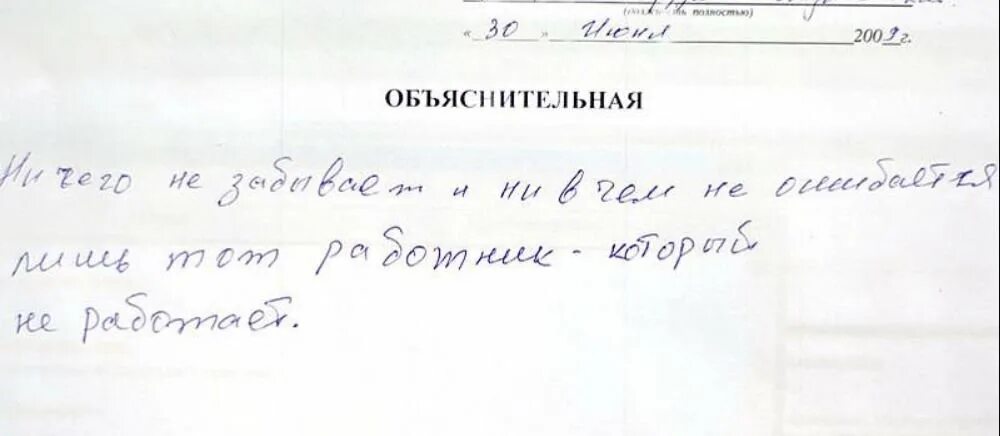 (должность полностью)
« 30 » Июня 2009 г.
ОБЪЯСНИТЕЛЬНАЯ
Ничего не забывает и ни в чем не ошибается
лишь тот работник - который
не работает.